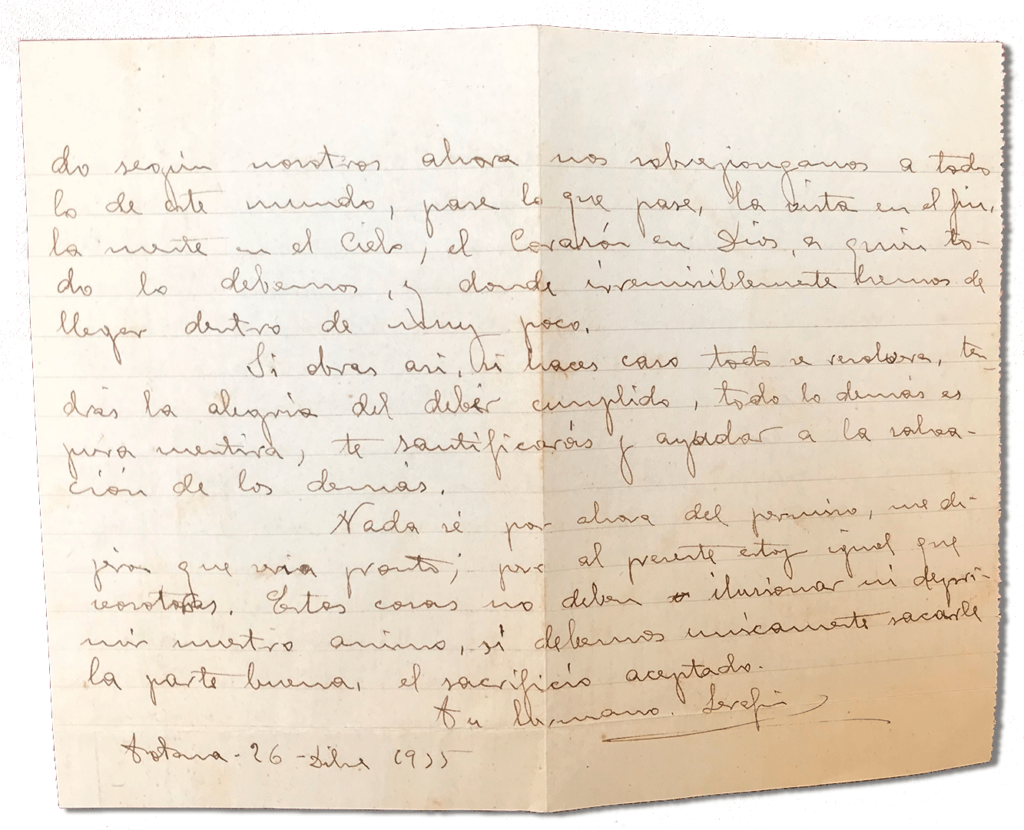 do según nosotros ahora nos sobrepongamos a todo
lo de este mundo, pase lo que pase, la vista en el fin,
la mente en el Cielo, el Corazón en Dios, a quien to-
do lo debemos, y donde irremisiblemente hemos de
llegar dentro de muy poco.
Si obras así, si haces caso todo se resolvera, ten-
drás la alegria del deber cumplido, todo lo demás es
pura mentira, te santificarás y ayudar a la salva-
ción de los demás.
Nada sé por ahora del permiso, me di-
jeron que seria pronto; pero al presente estoy igual que
vosotras. Estas cosas no deben ilusionar ni depri-
mir nuestro animo, si debemos unicamente sacarle
la parte buena, el sacrificio aceptado.
tu hermano. Serafin
Totana - 26 - Dibre 1955